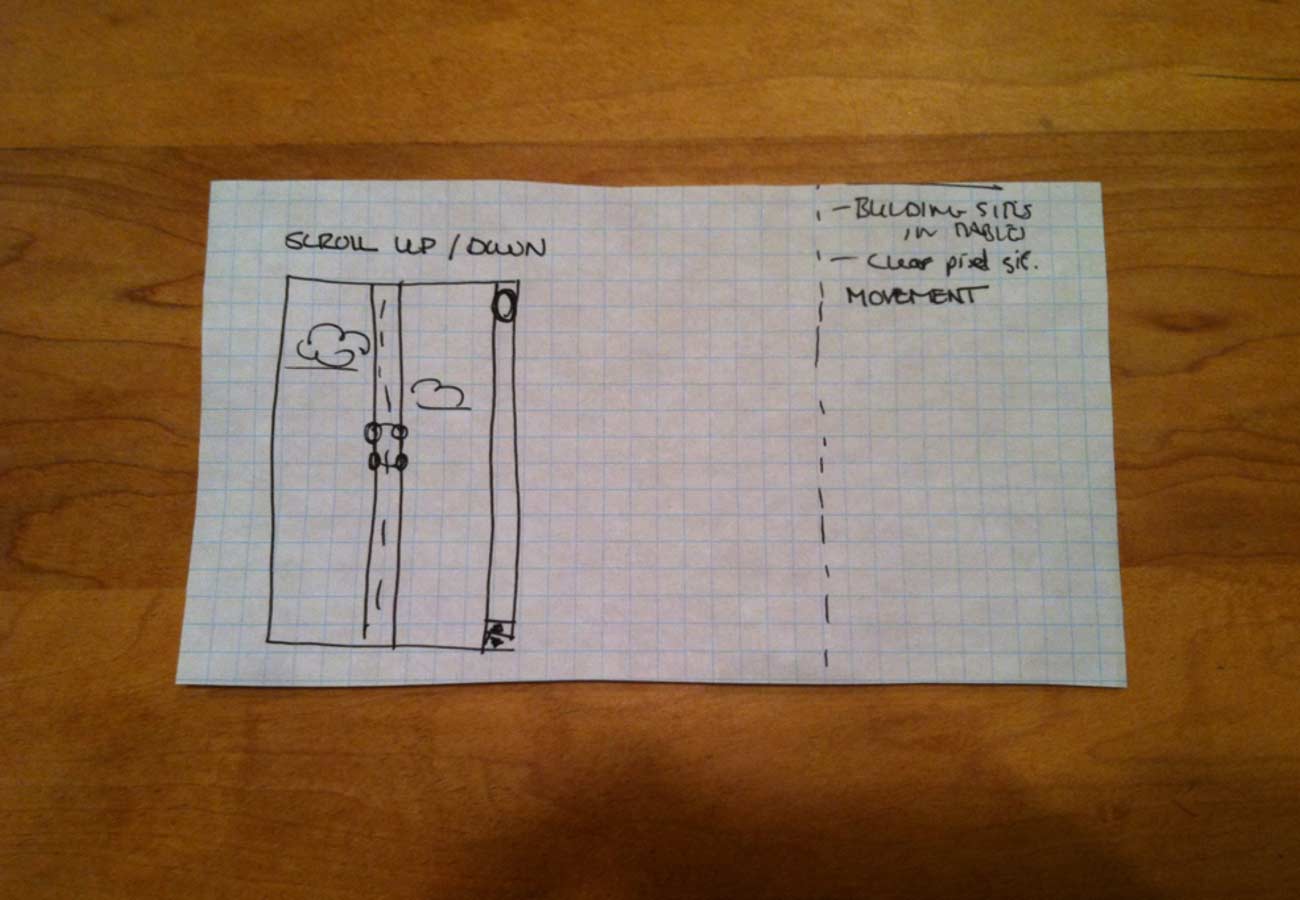 SCROLL UP / DOWN
- BUILDING SITES
IN TABLES
- Clear pixel gif.
MOVEMENT